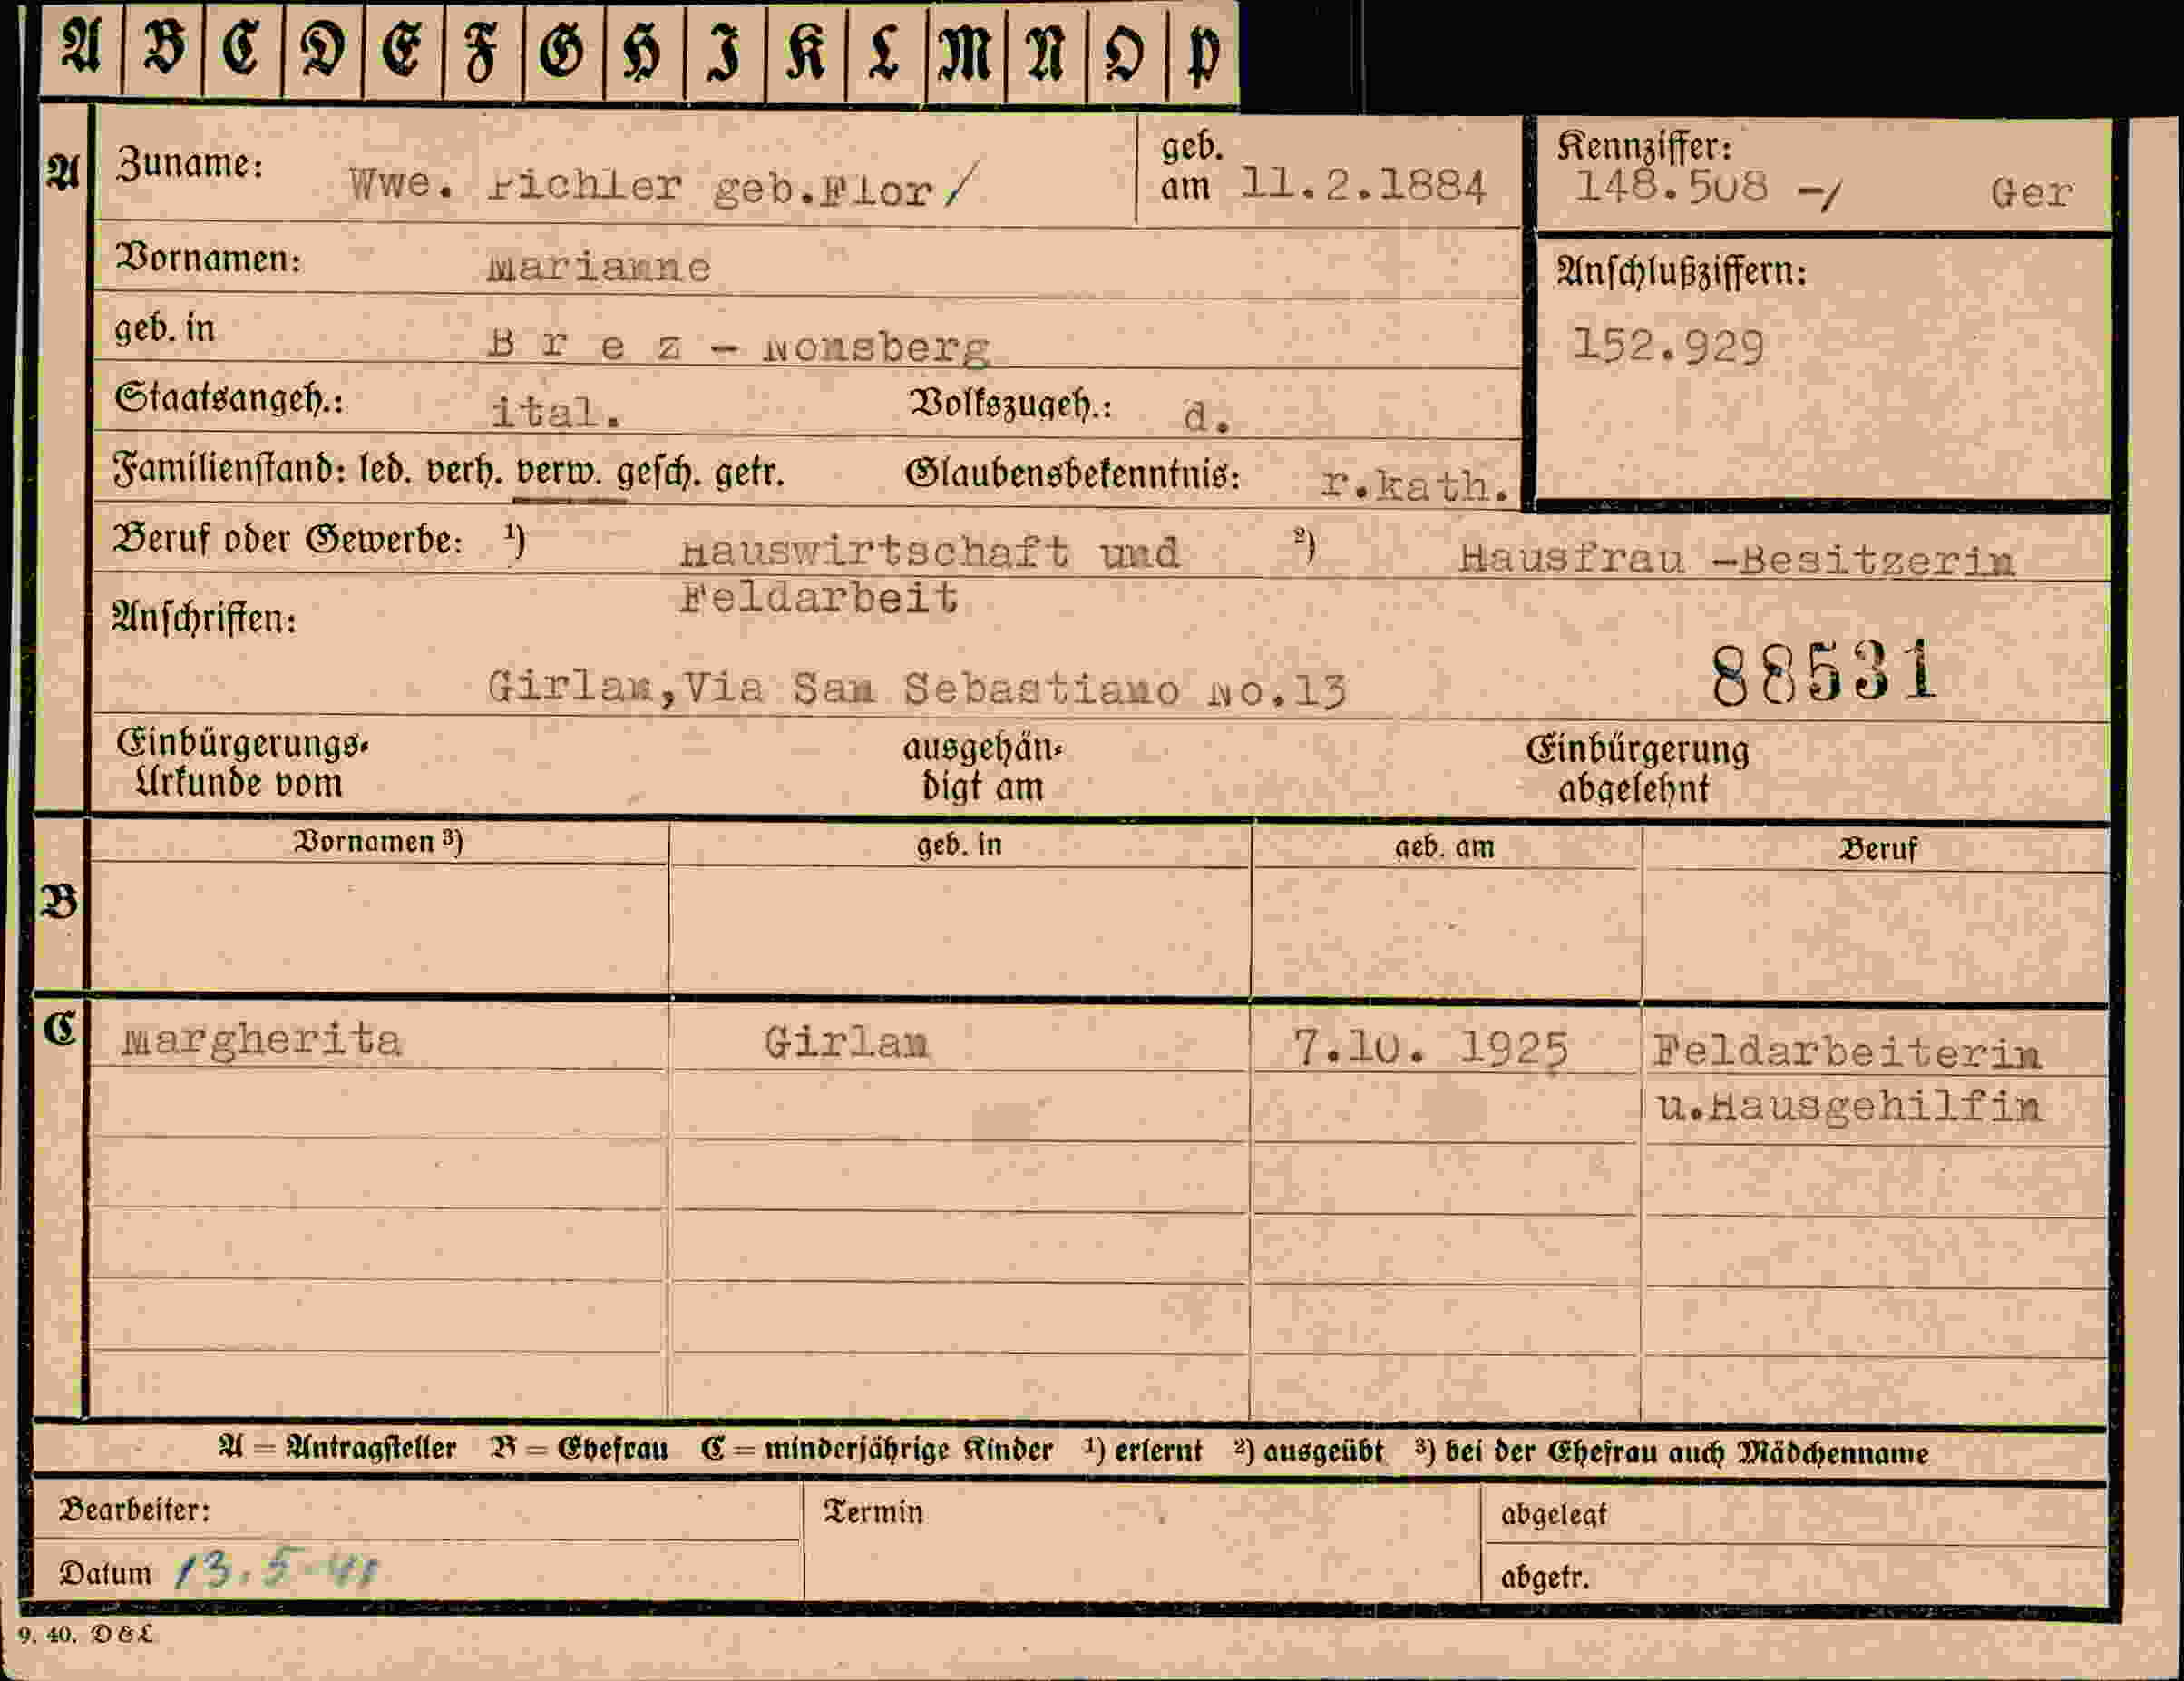 A B C D E F G H I K L M N O P
A Zuname: Wwe. Pichler geb.Flor/ geb. am 11.2.1884 Kennziffer: 148.508 -/ Ger
Vornamen: Marianne Anschlußziffern:
geb. in B r e z - Nonsberg 152.929
Staatsangeh.: ital. Volkszugeh.: d.
Familienstand: led. verh. verw. gesch. getr. Glaubensbekenntnis: r.kath.
Beruf oder Gewerbe: 1) Hauswirtschaft und 2) Hausfrau -Besitzerin
Feldarbeit
Anschriften:
Girlan,Via San Sebastiano No.13 88531
Einbürgerungs- ausgehän- Einbürgerung
Urkunde vom digt am abgelehnt
Vornamen 3) geb. in geb. am Beruf
B
C Margherita Girlan 7.10. 1925 Feldarbeiterin
u.Hausgehilfin
A = Antragsteller B = Ehefrau C = minderjährige Kinder 1) erlernt 2) ausgeübt 3) bei der Ehefrau auch Mädchenname
Bearbeiter: Termin abgelegt
Datum 13.5.41 abgetr.
9. 40. D&L